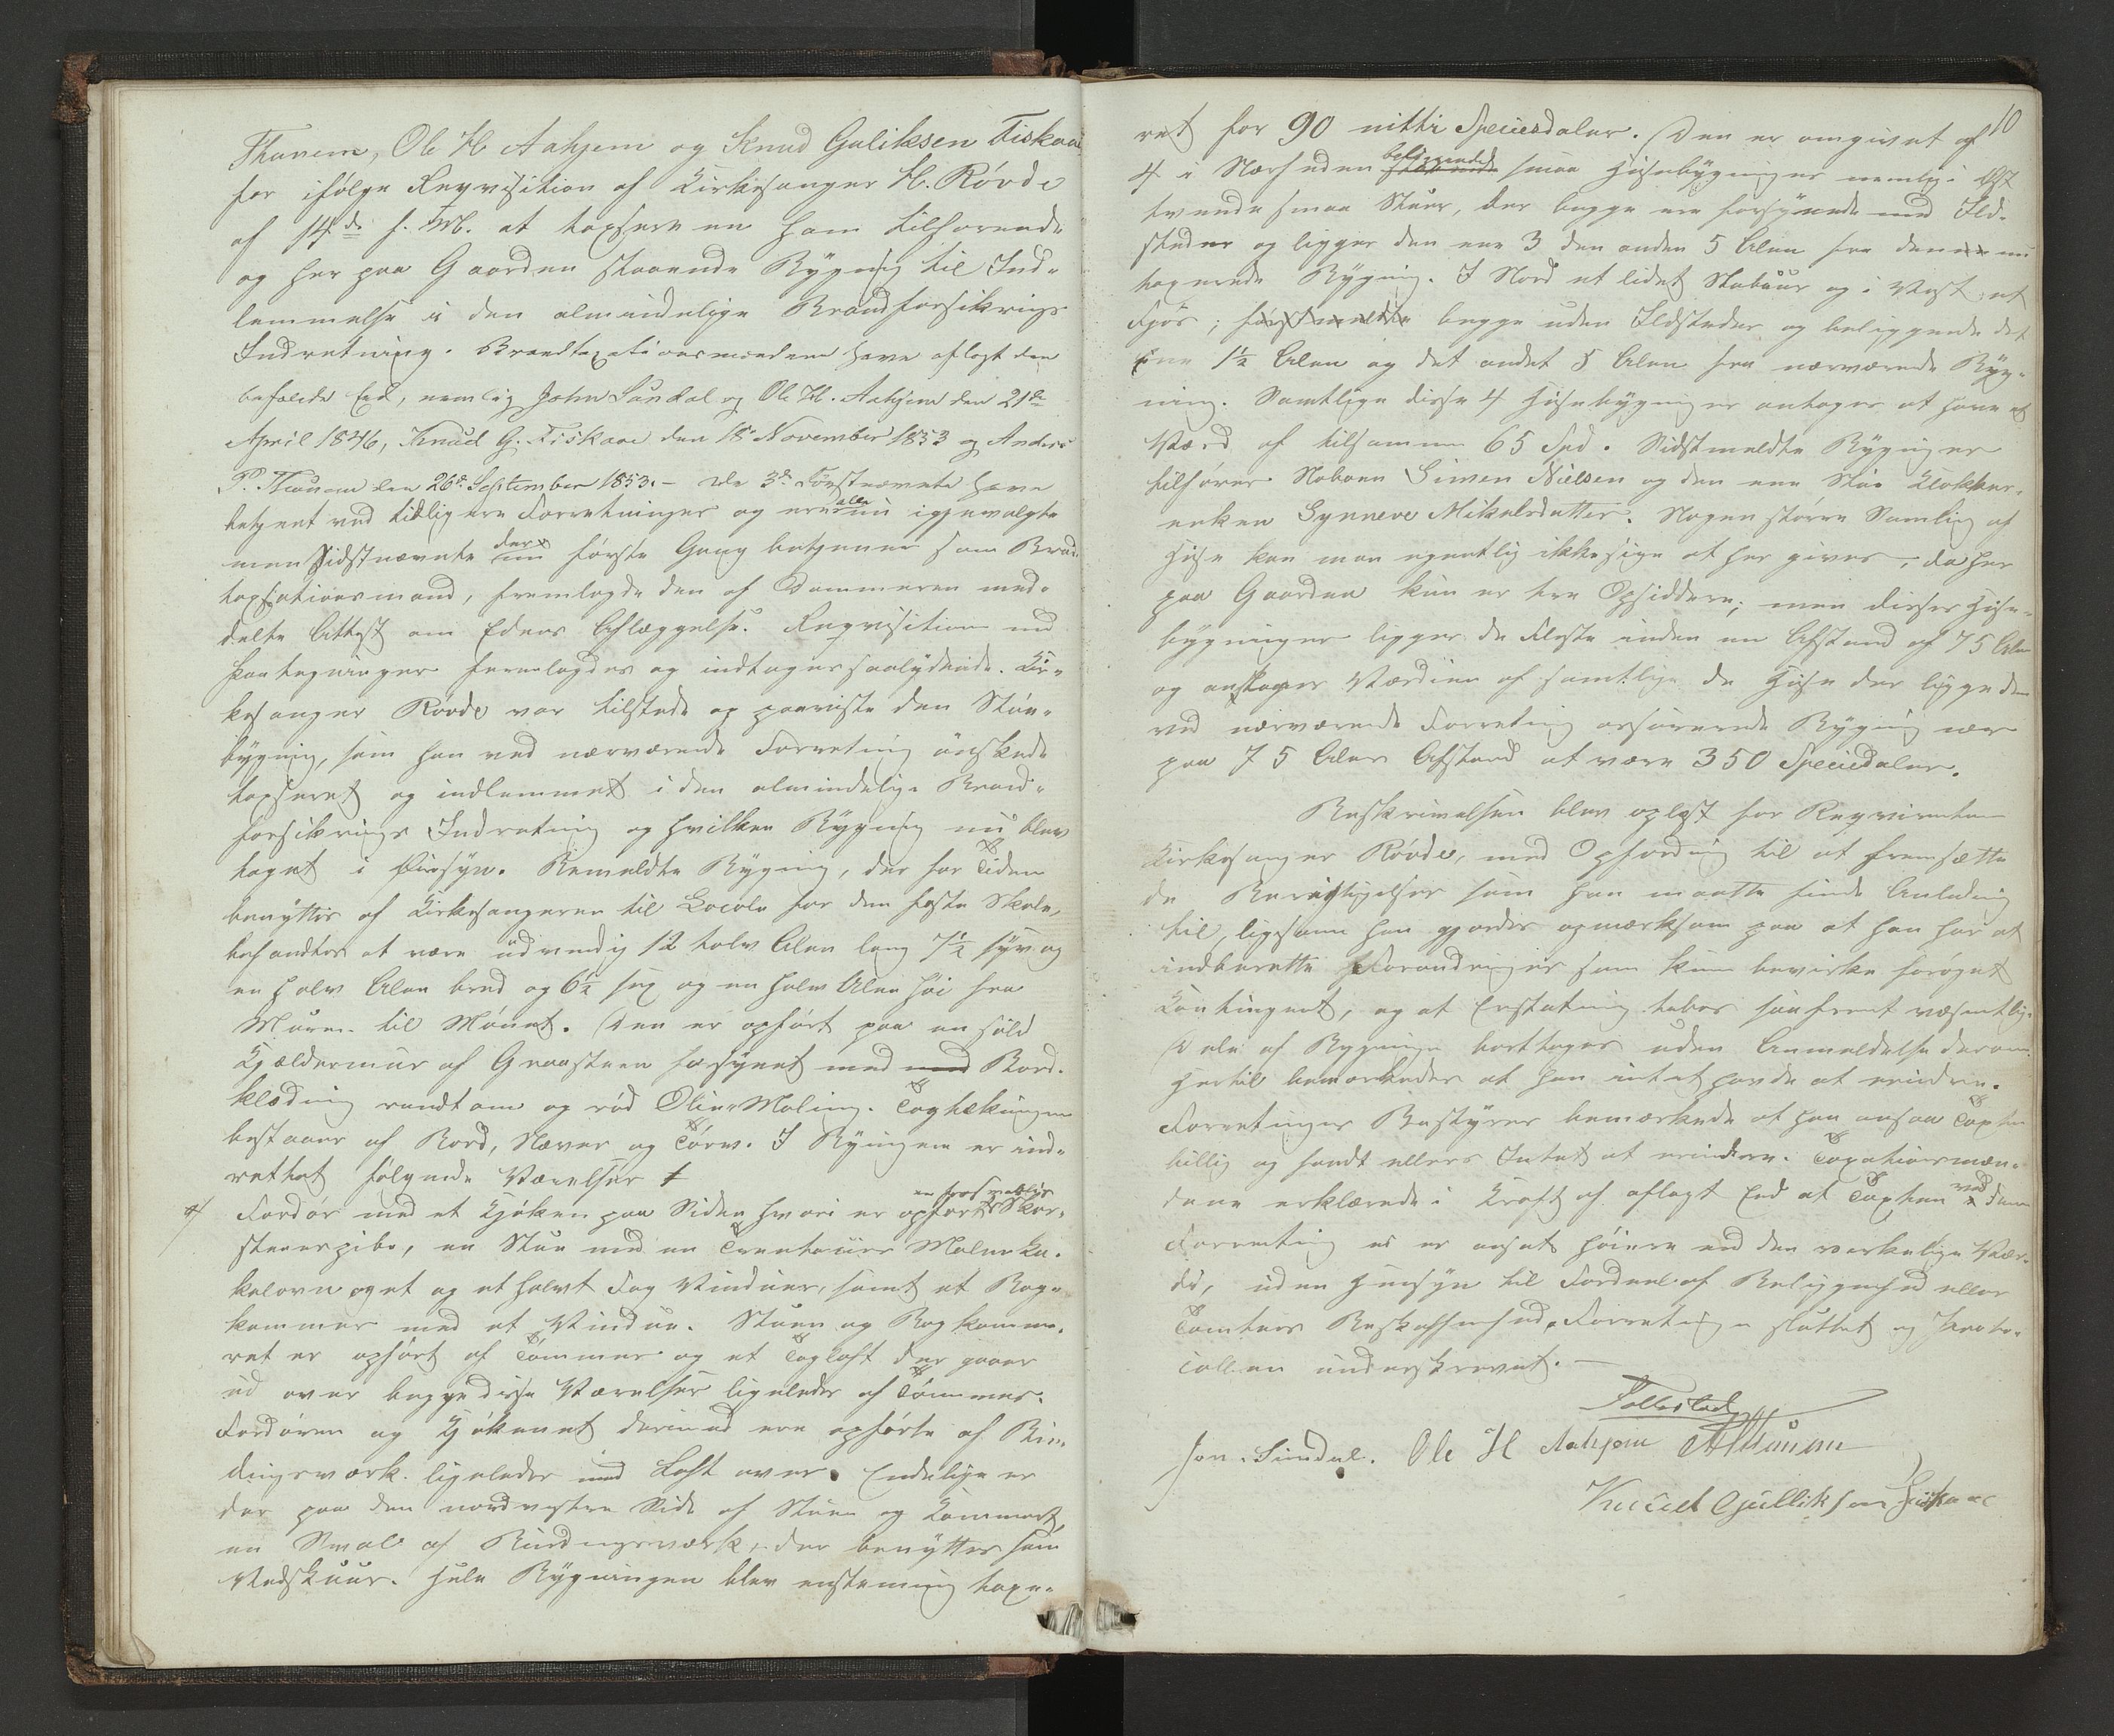 Thunem, Ole H Aahjem og Knud Guliksen Fiskaae
for ifölge Reqvisition af Kirkesanger H. Rövde
af 14de f. M. at taxsere en ham tilhörende
og her paa Gaarden staaende Bygnig til Ind-
lemmelse i den almindelige Brandforsikrings
Indretning. Brandtaxationsmændene have aflagt den
befalede Ed, nemlig John Sundal og Ole H. Aahjem den 21de
April 1846, Knud G. Fiskaae den 18 November 1853 og Anders
P. Thunem den 26de September 1853. – De 3de Förstnævnte have
betjent ved tidligere Forretninger og ere alle nu igjenvalgte
men Sidstnævnte der nu förste Gang betjener som Brand-
taxsationsmand, fremlagde den af Dommeren med-
delte Attest om Edens Aflæggelse. Reqvisitionen med
Paategninger fremlagdes og indtages saalydende. Kir-
kesanger Rövde var tilstede og paaviste den Stue-
bygnig, som han ved nærværende Forretnig önskede
taxseret og indlemmet i den almindelige Brand-
forsikrings Indretnig og hvilken Bygnig nu blev
taget i Øiesyn. Bemeldte Bygnig, der for Tiden
benyttes af Kirkesangeren til Locale for den faste Skole,
befandtes at være udvendig 12 tolv Alen lang 7½ syv og
en halv Alen bred og 6½ sex og en halv Alen höi fra
Muren til Mönet. Den er opfört paa en fuld
Kjældermur af Graasteen forsynet med med Bord-
klædnig rundtom og röd Olie-Maling. Tagtækningen
bestaaer af Bord, Næver og Törv. I Byningen er ind-
rettet fölgende Værelser +
+/ Fordör med et Kjöken paa Siden hvori er opfört en forsvarlig Skor-
steenspibe, en Stue med en Treetages Malm Ka-
kelovn og et og et halvt Fag Vinduer, samt et Bag-
kammer med et Vindue. Stuen og Bagkamme-
ret er opfört af Tömmer og et Tagloft der gaaer
ud over begge disse Værelser ligeledes af Tömmer.
Fordören og Kjökenet derimod ere opförte af Bin-
dingsværk ligeledes med Loft over. Endelige er
der paa den nordvestre Side af Stuen og Kammeret
en Sval af Bindingsværk, der benyttes som
Vedskuur. Hele Bygningen blev enstemnig taxe-
10
ret for 90 nitti Speciesdaler. Den er omgivet af
4 i Nærheden beliggende staaende smaa Huusebygninger nemlig i Øst
tvende smaa Stuer, der begge ere forsynede med Ild-
steder og ligger den ene 3 den anden 5 Alen fra denne nu
taxerede Bygnig. I Nord et lidet Stabuur og i Vest et
Fjös; förstmeldte begge uden Ildsteder og beliggende det
ene 1½ Alen og det andet 5 Alen fra nærværende Byg-
ning. Samtlige disse 4 Huusebygniger antages at have et
Værd af tilsammen 65 Spd. Sidstmeldte Bygniger
tilhörer Naboen Simen Nielsen og den ene Stue Klokker-
enken Synneve Mikelsdatter. Nogen större Samlig af
Huse kan man egentlig ikke sige at her gives, da her
paa Gaarden kun er tre Opsiddere; men disses Huse-
bygninger ligger de Fleste inden en Afstand af 75 Alen
og antages Værdien af samtlige de Huse der ligge den
ved nærværende Forretnig assurerede Bygnig nær
paa 75 Alens Afstand at være 350 Speciedaler.
Beskrivelsen blev oplæst for Reqvirenten
Kirkesanger Rövde, med Opfordrig til at fremsætte
de Berigtigelser som han maatte finde Anledning
til, ligesom han gjordes opmærksom paa at han har at
indberette Forandringer som kun bevirke foröget
Kontingent, og at Erstatning tabes saafremt væsentlige
Dele af Bygninge borttages uden Anmeldelse derom.
Hertil bemærkedes at han intet havde at erindre.
Forretnigens Bestyrer bemærkede at han ansaa Taxten
billig og fandt ellers Intet at erindre. Taxationsmæn-
dene erklærede i Kraft af aflagt Ed at Taxten ved denne
Forretnig ei er ansat höiere end den verkelige Vær-
di, uden Hensyn til Fordeel af Beliggenhed eller
Tomtens Beskaffenhed. Forretnigen sluttet og Proto-
collen underskrevet. —
Tollestad
Jon. Sundal. Ole H Aahjem AP Thunem
Knud Gullikson Fiskaae